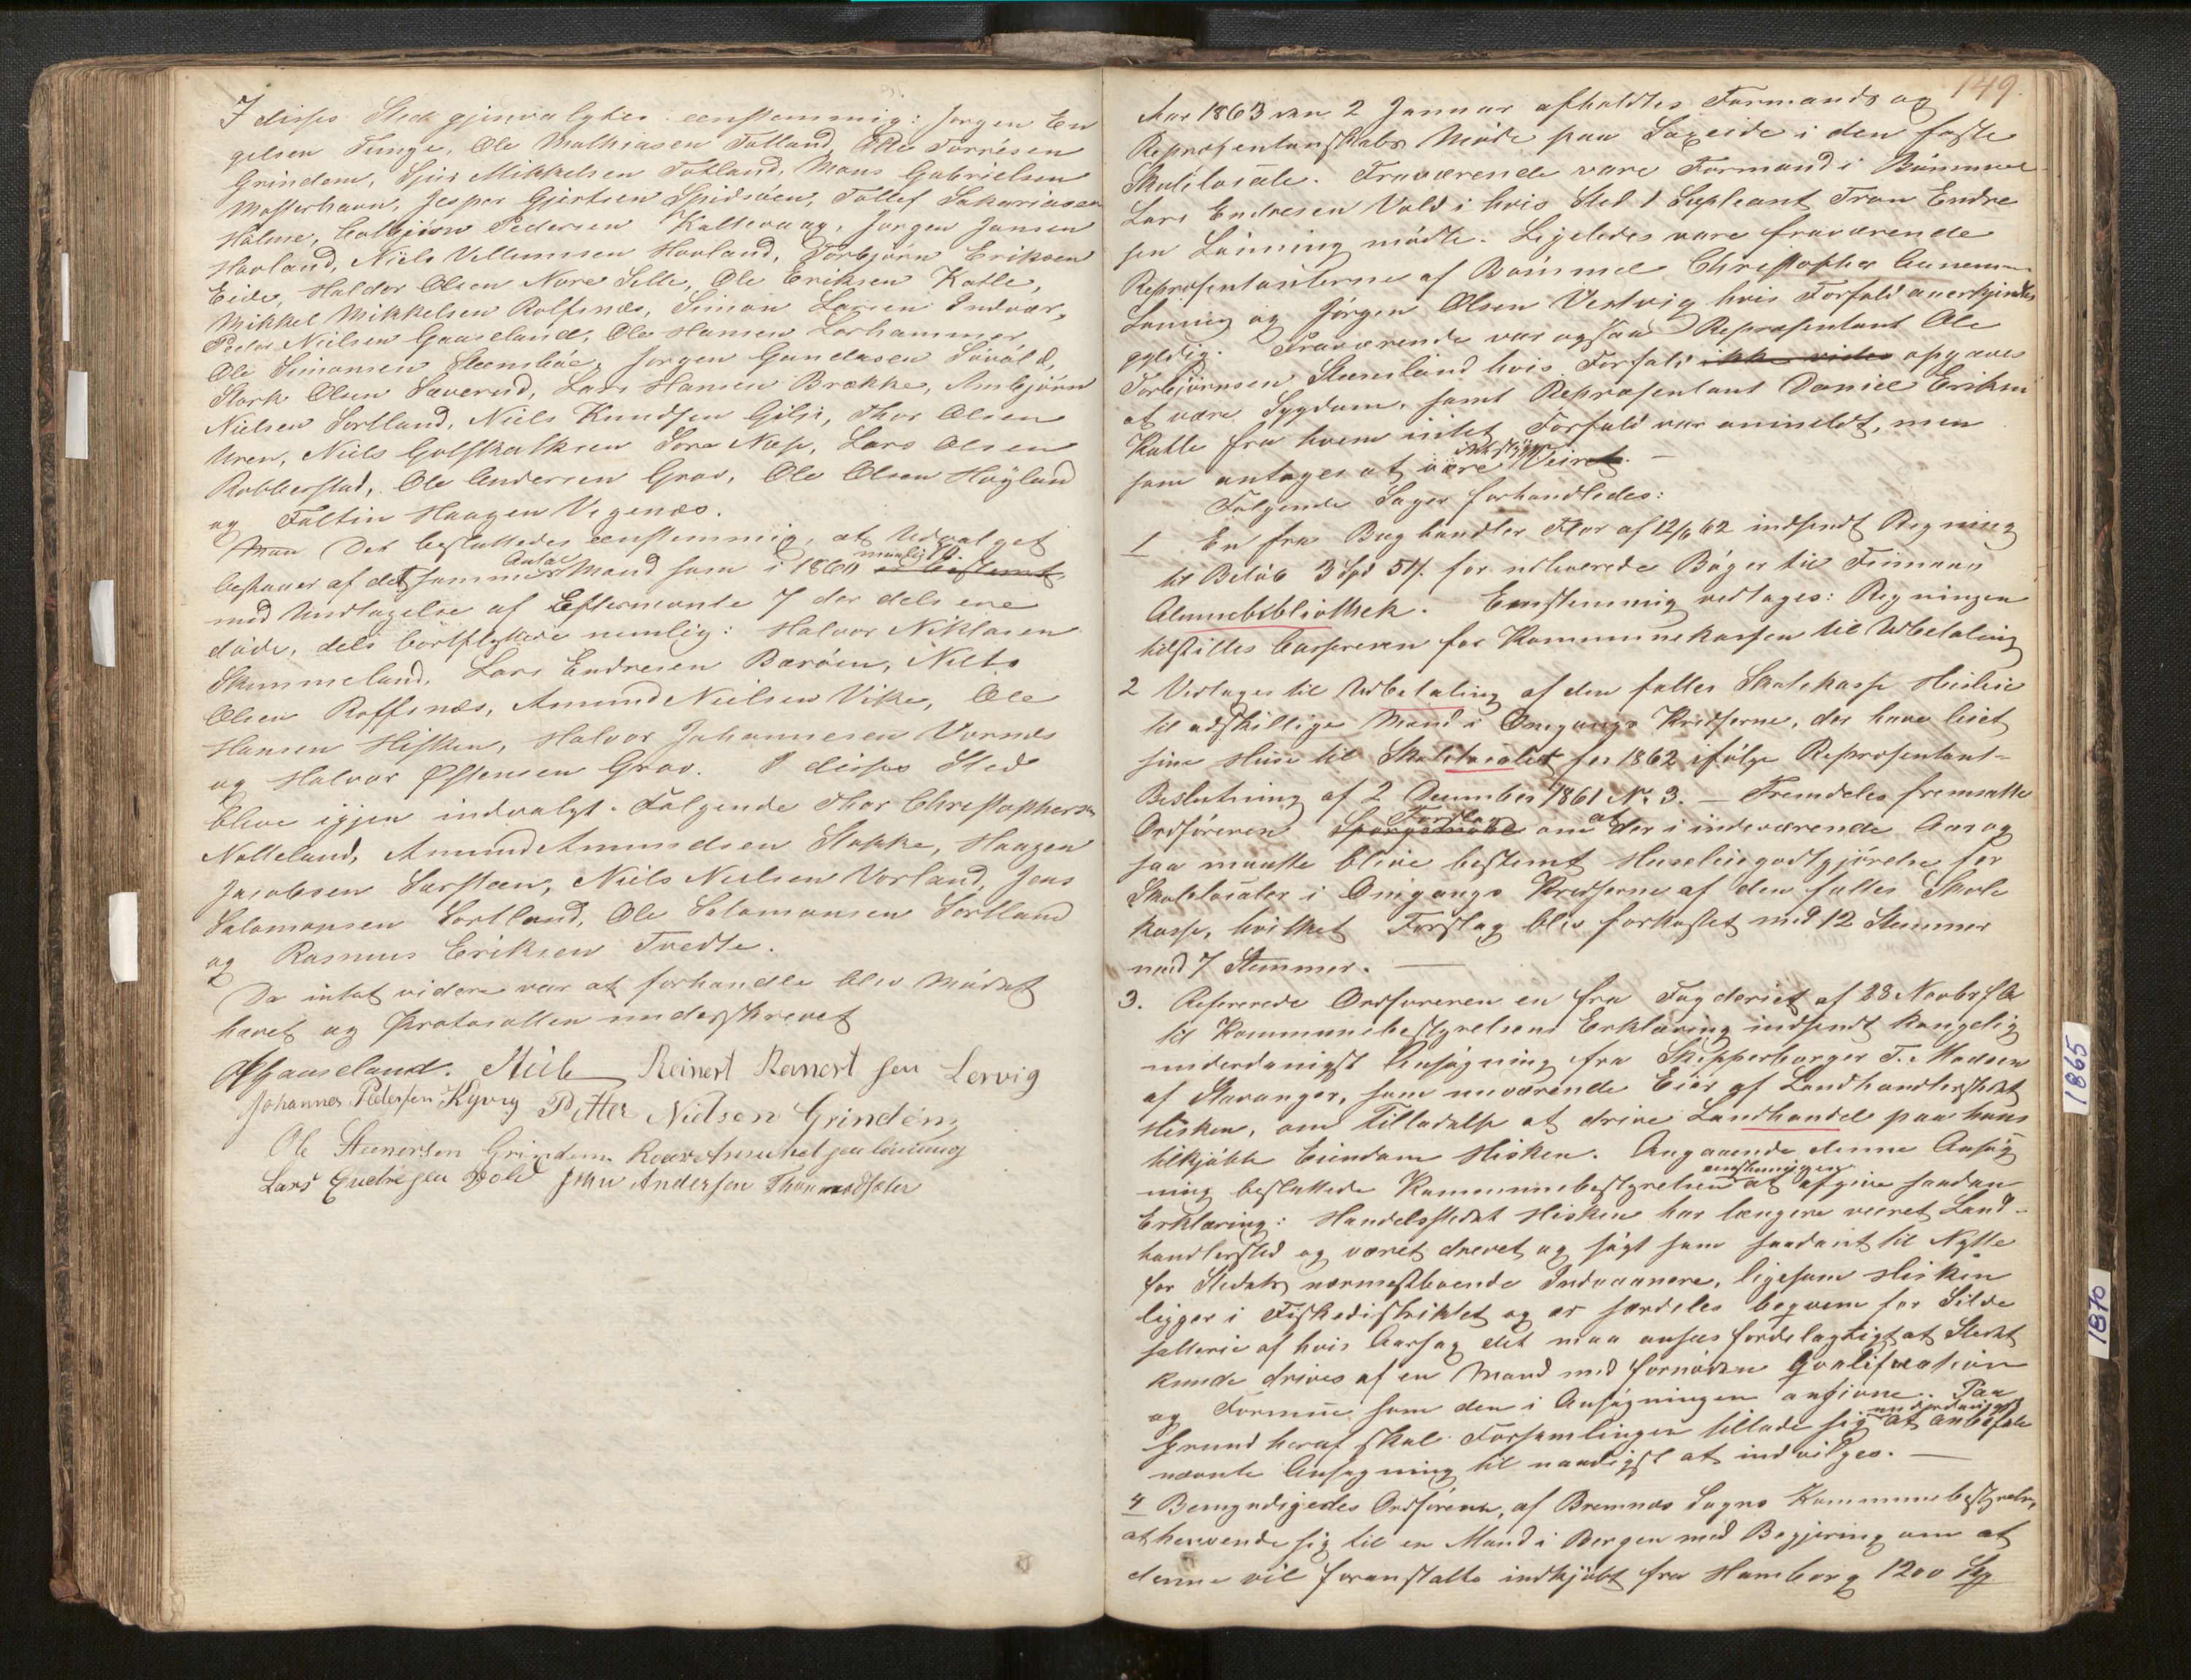 I disses Sted gjenvalgtes eenstemmig: Jørgen En
gelsen Tunge, Ole Mathiasen Totland, Ole Torresen
Grindem, Sjur Mikkelsen Totland, Mons Gabrielsen
Mosterhavn, Jesper Gjertsen Spidsøen, Tollef Sakariasen
Holme, Colbjørn Pedersen Kallevaag, Jørgen Jansen
Hovland, Niels Villumsen Hovland, Torbjørn Eriksen
Eide, Haldor Olsen Nore Selle, Ole Eriksen Katle,
Mikkel Mikkelsen Rolfsnæs, Simon Larsen Indvær,
Peder Nielsen Gaaseland, Ole Hansen Lorhammer
Ole Simonsen Steensbøe, Jørgen Gundasen Søvold,
Stork Olsen Sæverud, Lars Hansen Brække, Ambjørn
Nielsen Sortland, Niels Knudsen Gilje, Thor Olsen
Uren, Niels Golskalksen Søre Næs, Lars Olsen
Robberstad, Ole Andersen Grov, Ole Olsen Høyland
og Faltin Haagen Vigenæs.
Man Det besluttedes eenstemmig, at Udvalget
bestaaer af det samme Antal Mand som i 1860 er bestemt
med Undtagelse af Efternevnte 7 der dels ere
døde, dels bortflyttede nemlig: Halvor Niklasen
Skimmeland, Lars Endresen Børøen, Niels
Olsen Roffsnæs, Amund Nielsen Vike, Ole
Hansen Hisken, Halvor Johannesen Vornes
og Halvor Østensen Grov. I disses Sted
bleve igjen indvalgt. Følgende Thor Christophersen
Nolleland, Amund Amundsen Stokke, Haagen
Jacobsen Sarsteen, Niels Nielsen Vorland, Jens
Salomonsen Sortland, Ole Salomonsen Sortland
og Rasmus Eriksen Tvedte.
Da intet videre var at forhandle blev Mødet
hævet og Protocollen underskrevet
Gaaseland. Reinert Reinertsen Lervig
Johannes Pedersen Kyvig Petter Nielsen Grindem
Ole Steenersen Grindem Lønning
Lars Endresen Vold John Andersen
149.
Aar 1863 den 2 Januar afholdtes Formands og
Repræsentantskabs Møde paa Laxeide i den faste
Skolelocale. Fraværende vare Formand i Bømmel
Lars Endresen Vold i hvis Sted 1 Supleant Tron Endre
sen Lønning mødte. Ligeledes vare fraværende
Repræsentanterne af Bømmel Christopher
Løning og Jørgen Olsen Vestvig hvis Forfald anerkjendtes
gyldig. Fraværende var ogsaa Repræsentant Ole
Torbjørnsen Steensland hvis Forfald ikke vides opgaves
at være Sygdom, samt Repræsentant Daniel Eriksen
Katle fra hvem intet Forfald var anmeldt, men
som antages at være Veiret. –
Følgende Sager forhandledes:
1 En fra Boghandler Flor af 12/6 62 indsendt Regning
til Beløb 3 Spd 5 for udleverede Bøger til Finnaas
Almuebibliothek. Eenstemmig vedtages: Regningen
tilstilles Cassereren for Kommunekassen til Udbetaling
2 Vedtages til Udbetaling af den fælles Skolekasse Husleie
til adskillige Mænd i Omgangs Kredserne, der have leiet
sine Huse til Skolelocalet for 1862 ifølge Repræsentant-
Beslutning af 2 December 1861 No 3. – Fremdeles fremsatte
Ordføreren Spørgsmaal Forslag om at der i indeværende Aar og
saa maatte blive bestemt Husleiegodtgjørelse for
Skolelocaler i Omgangs Kredserne af den fælles Skole
kasse, hvilket Forslag blev forkastet med 12 Stemmer
mod 7 Stemmer. –
3. Refererede Ordføreren en fra Fogderiet af 28 Novbr f A
til Kommunebestyrelsens Erklæring indsendt kongelig
underdanigst Ansøgning fra Skipperborger T. Madsen
af Stavanger, som nuværende Eier af Landhandlerstedet
Hisken, om Tilladelse at drive Landhandel paa hans
tilkjøbte Eiendom Hisken. Angaaende denne Ansøg
ning besluttede Kommunebestyrelsen eenstemmigen at afgive saadan
Erklæring: Handelsstedet Hisken har længere været Land-
handlersted og været drevet og søgt som saadant til Nytte
for Stedets nærmestboende Indvaanere, ligesom Hisken
ligger i Fiskedistriktet og er særdeles beqvem for Silde
salterie af hvis Aarsag det maa ansees fordelagtigt at Stedet
kunde drives af en Mand med fornøden Qvalification
og Formue som den i Ansøgningen angivne. Paa
Grund heraf skal Forsamlingen tillade sig underdanigst at anbefale
nævnte Ansøgning til naadigst at indvilges. –
4 Bemyndigedes Ordføreren, af Bremnæs Sogns Kommunebestyrelse,
at henvende sig til en Mand i Bergen med Begjering om at
denne vil foranstalte indkjøbt fra Hamborg 1200
1865
1870